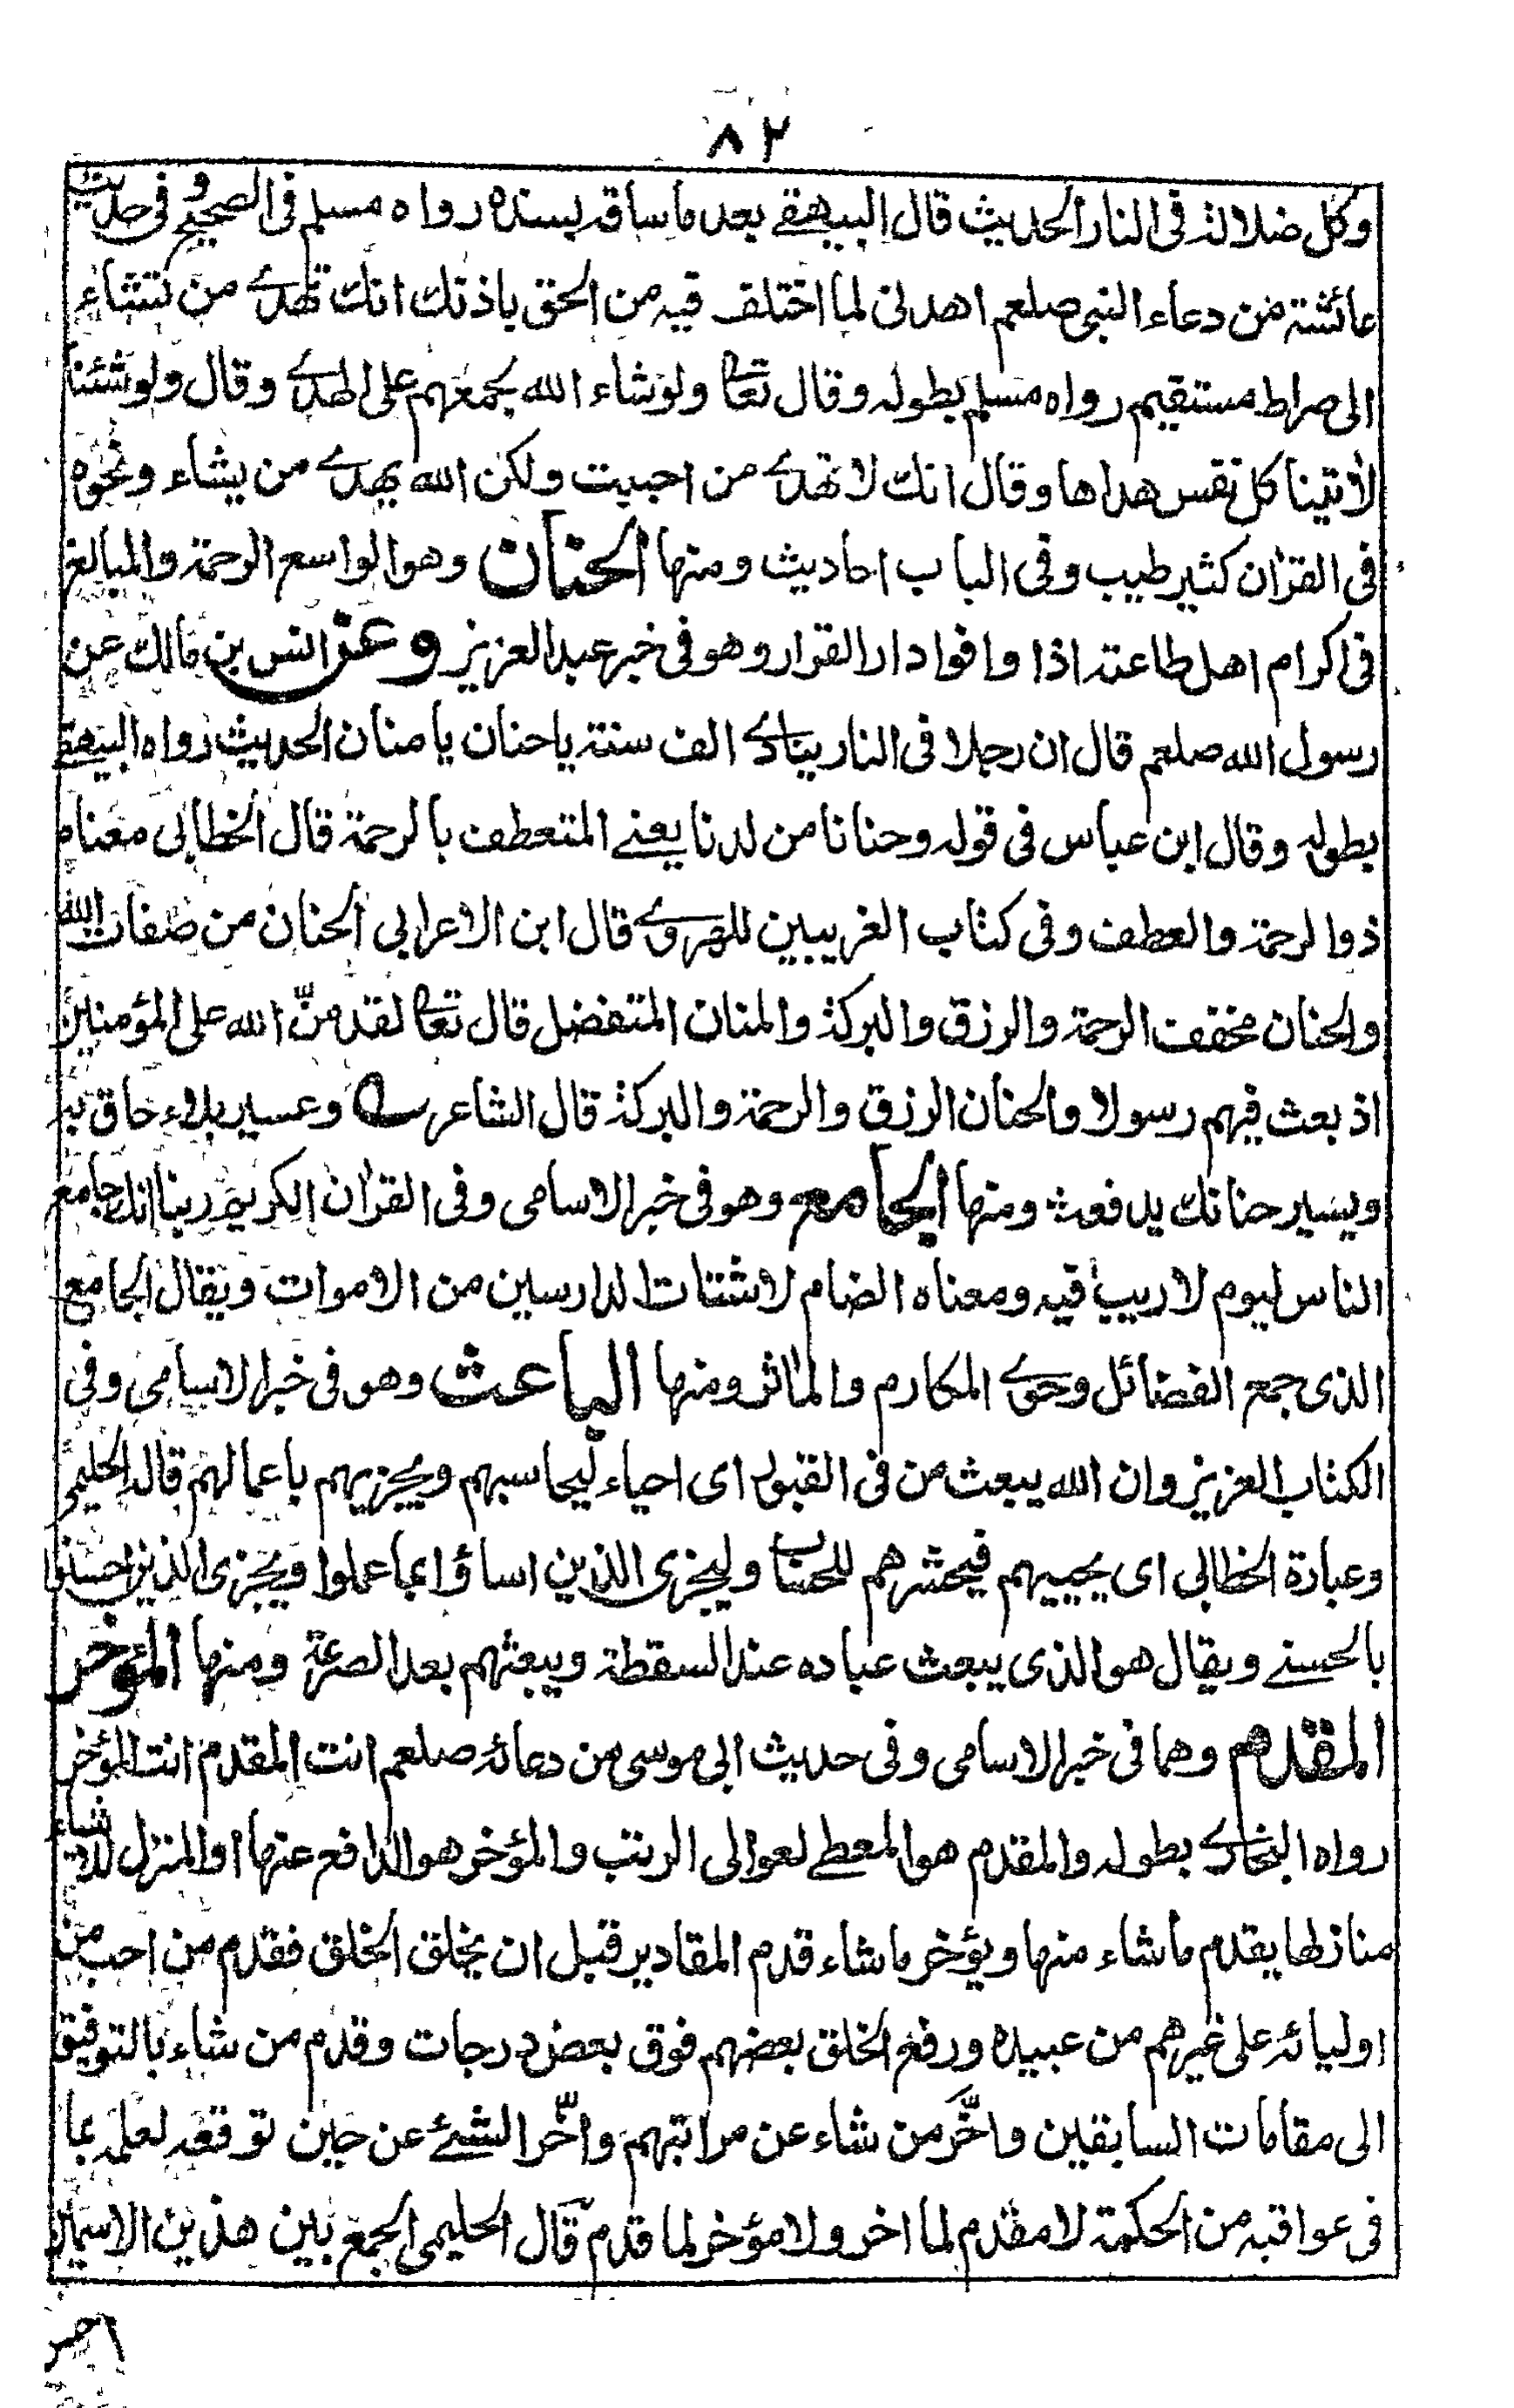 ٨٢
وكل ضلالة فى النار الحديث قال البيهقے بعد ما ساقه بسنده رواه مسلم فى الصحيح و فى حديث
عائشة من دعاء النبى صلعم اهدنى لما اختلف فيه من الحق باذنك انك تهدے من تشاء
الى صراط مستقيم رواه مسلم بطوله وقال تعا ولو شاء الله لجمعهم على الهدے وقال ولو شئنا
لأتينا كل نفس هداها وقال انك لا تهدے من احببت ولكن الله يهدے من يشاء ونحوه
فى القرٰان كثير طيب وفى الباب احاديث ومنها الحنان وهو الواسع الرحمة والمبالغ
فى اكرام اهل طاعته اذا وافوا دار القرار وهو فى خبر عبد العزيز وعن انس بن مالك عن
رسول الله صلعم قال ان رجلا فى النار ينادے الف سنة يا حنان يا منان الحديث رواه البيهقے
بطوله وقال ابن عباس فى قوله وحنانا من لدنا يعنے المتعطف بالرحمة قال الخطابى معناه
ذو الرحمة والعطف وفى كتاب الغريبين للهروے قال ابن الاعرابي الحنان من صفات الله
والحنان مخفف الرحمة والرزق والبركة والمنان المتفضل قال تعا لقد منّ الله على المؤمنين
اذ بعث فيهم رسولا والحنان الرزق والرحمة والبركة قال الشاعر وعسير بلاء حاق به
ويسير حنانك يدفعه ومنها الجامع وهو فى خبر الاسامى وفى القرٰان الكريم ربنا انك جامع
الناس ليوم لا ريب فيه ومعناه الضام لاشتات الدارسين من الاموات ويقال الجامع
الذى جمع الفضائل وحوے المكارم والمٰاثر ومنها الباعث وهو فى خبر الاسامى وفى
الكتاب العزيز وان الله يبعث من فى القبور اى احياء ليحاسبهم ويجزيهم باعمالهم قاله الحليمى
وعبارة الخطابى اى يحييهم فيحشرهم للحساب وليجزى الذين اساؤا بما عملوا ويجزى الذين احسنوا
بالحسنے ويقال هو الذى يبعث عباده عند السقطة ويبعثهم بعد الصرعة ومنها المؤخر
المقدم وهما فى خبر الاسامى وفى حديث ابى موسى من دعائه صلعم انت المقدم انت المؤخر
رواه البخارے بطوله والمقدم هو المعطے لعوالى الرتب والمؤخر هو الدافع عنها او المنزل للاشياء
منازلها يقدم ما شاء منها ويؤخر ما شاء قدم المقادير قبل ان يخلق الخلق فقدم من احب من
اوليائه على غيرهم من عبيده ورفع الخلق بعضهم فوق بعض درجات وقدم من شاء بالتوفيق
الى مقامات السابقين واخّر من شاء عن مراتبهم واخّر الشئے عن حين توقعه لعلمه بما
فى عواقبه من الحكمة لا مقدم لما اخر ولا مؤخر لما قدم قال الحليمى الجمع بين هذين الاسمين